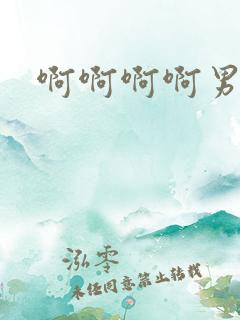 啊啊啊啊男
泓零
未经同意禁止转载